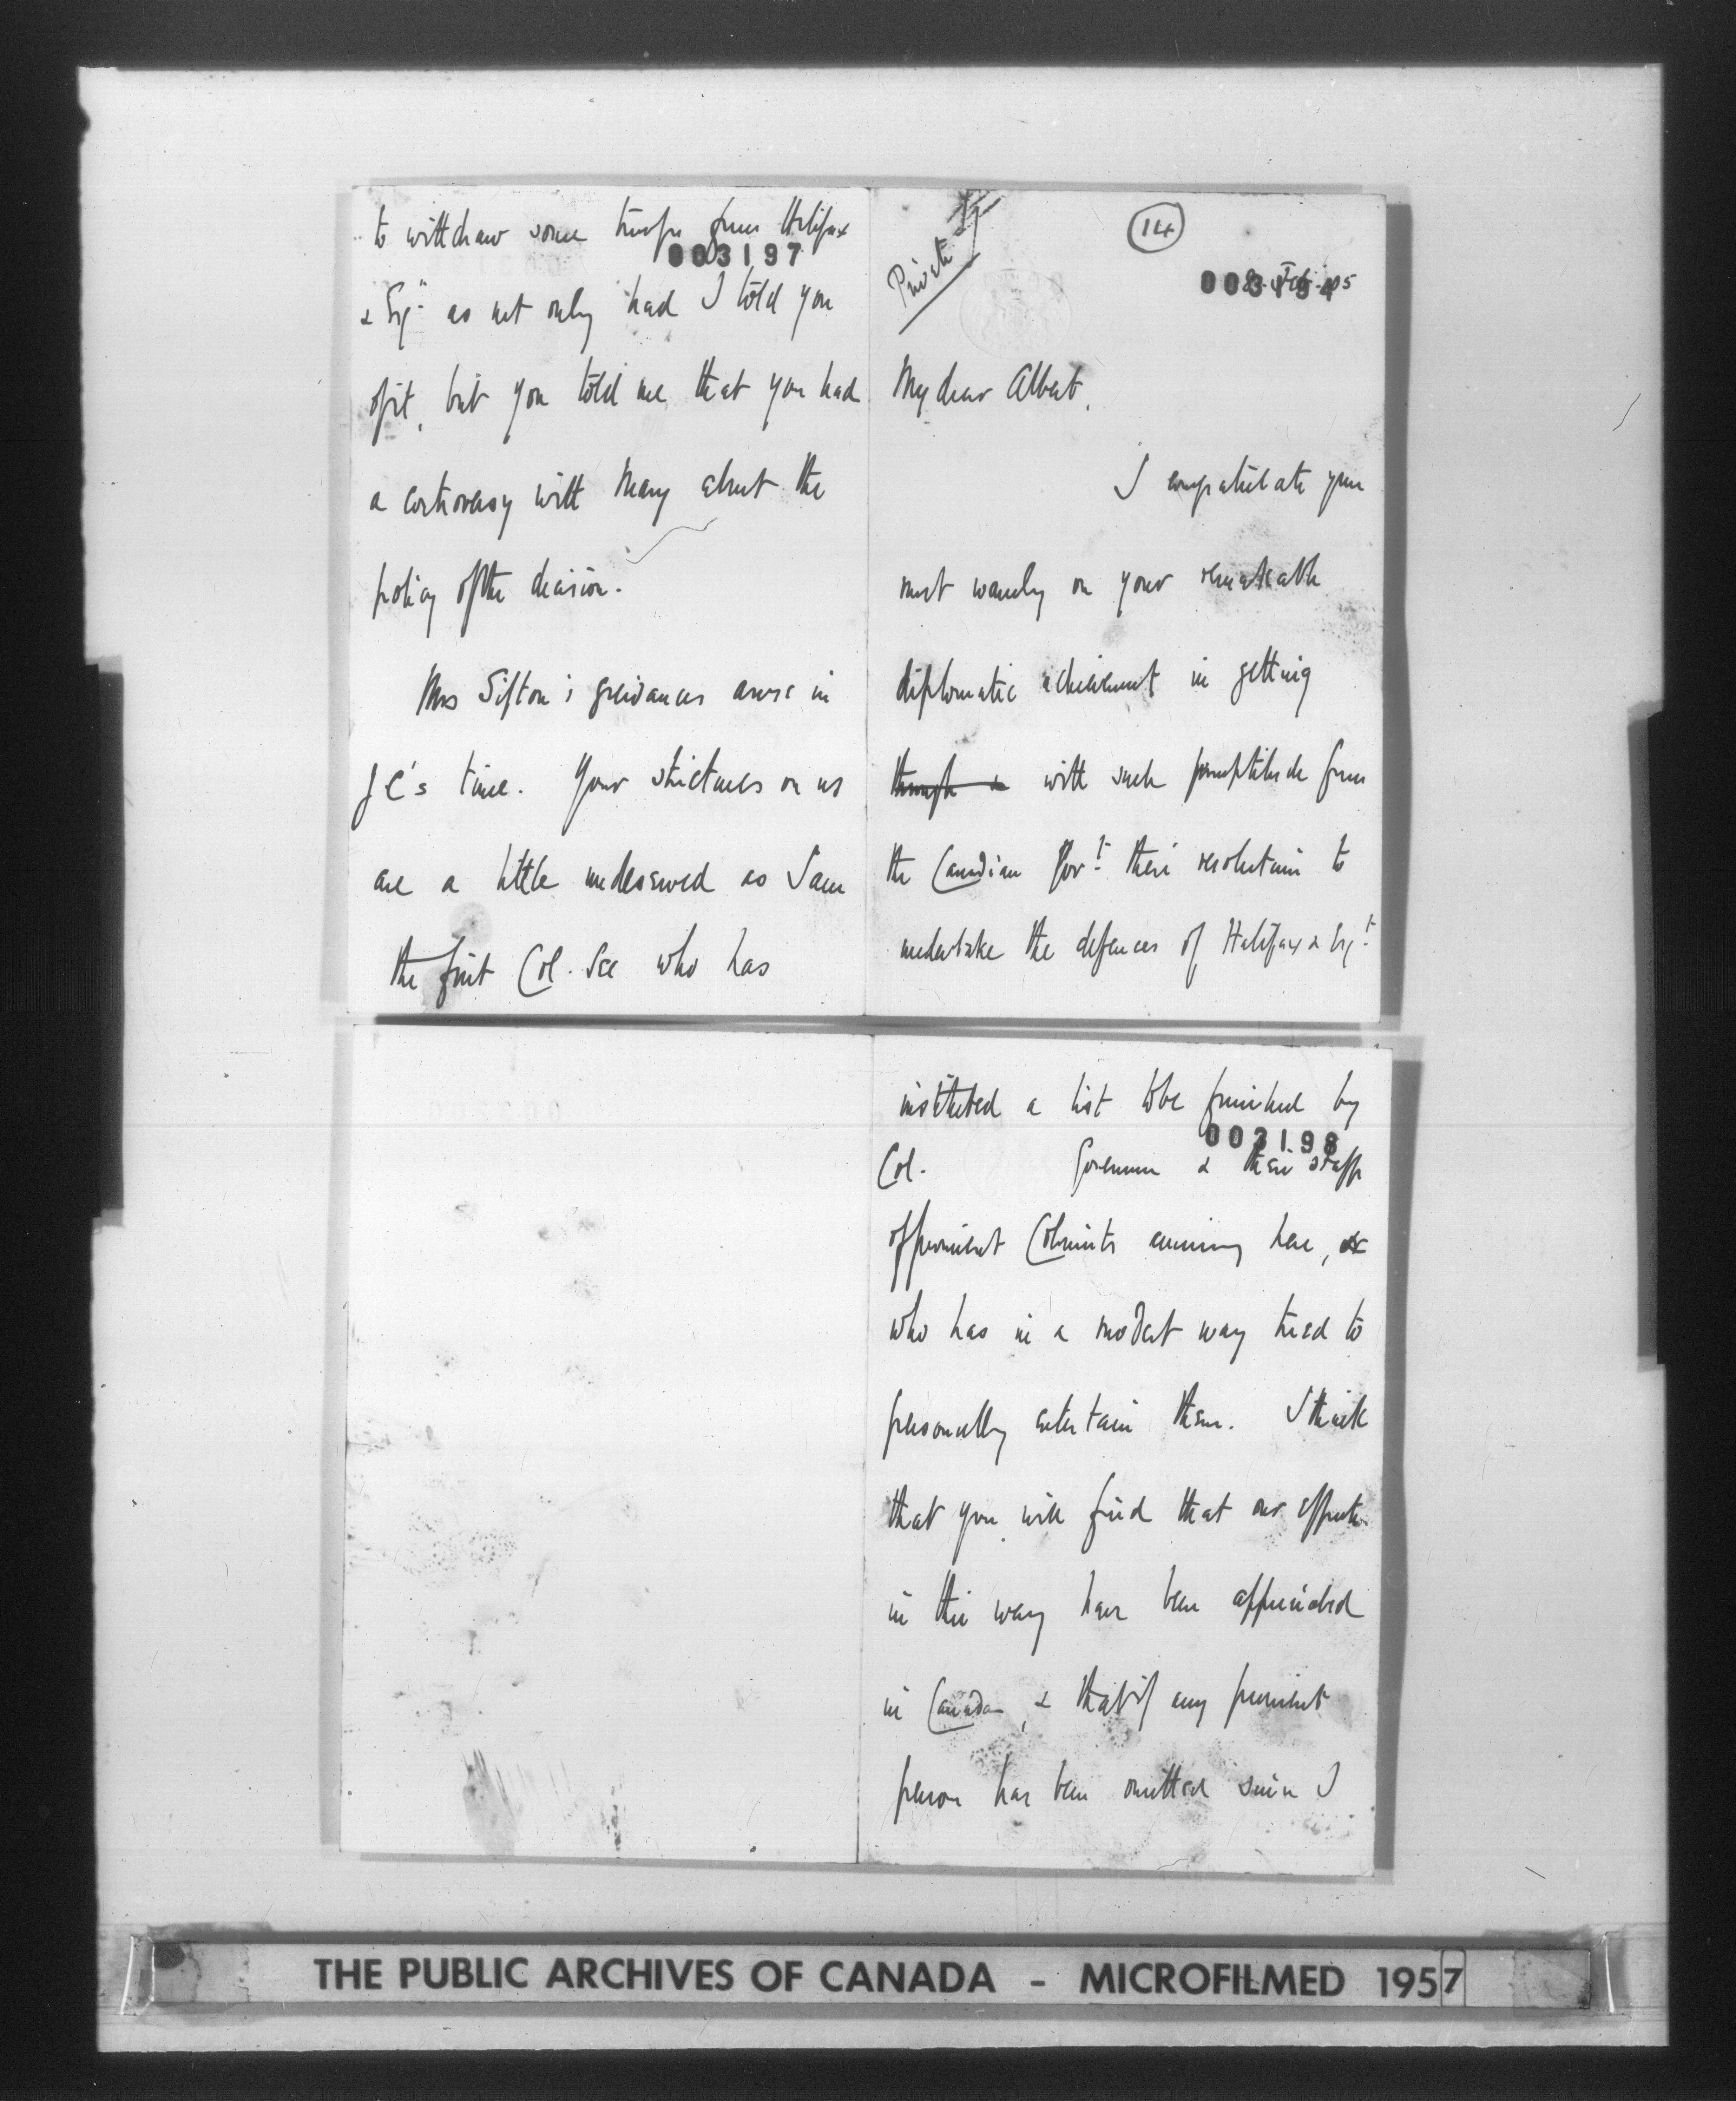 to withdraw some troops from Halifax
003197
& Esq^lt as not only had I told you
of it, but you told me that you had
a controversy with Mary about the
policy of the decision.
Mrs Sifton's grievances arose in
J C's time. Your strictures on us
are a little undeserved as I am
the first Col. Sec who has
Private
14
003194
8. Feb. 05
My dear Albert,
I congratulate you
most warmly on your remarkable
diplomatic achievement in getting
through & with such promptitude from
the Canadian Gov^t. their resolution to
undertake the defences of Halifax & Esq^t.
instituted a list to be furnished by
003198
Col. Governors & their staffs
of prominent Colonists coming here, &
who has in a modest way tried to
personally entertain them. I think
that you will find that our efforts
in this way have been appreciated
in Canada, & that if any prominent
person has been omitted since I
THE PUBLIC ARCHIVES OF CANADA - MICROFILMED 1957